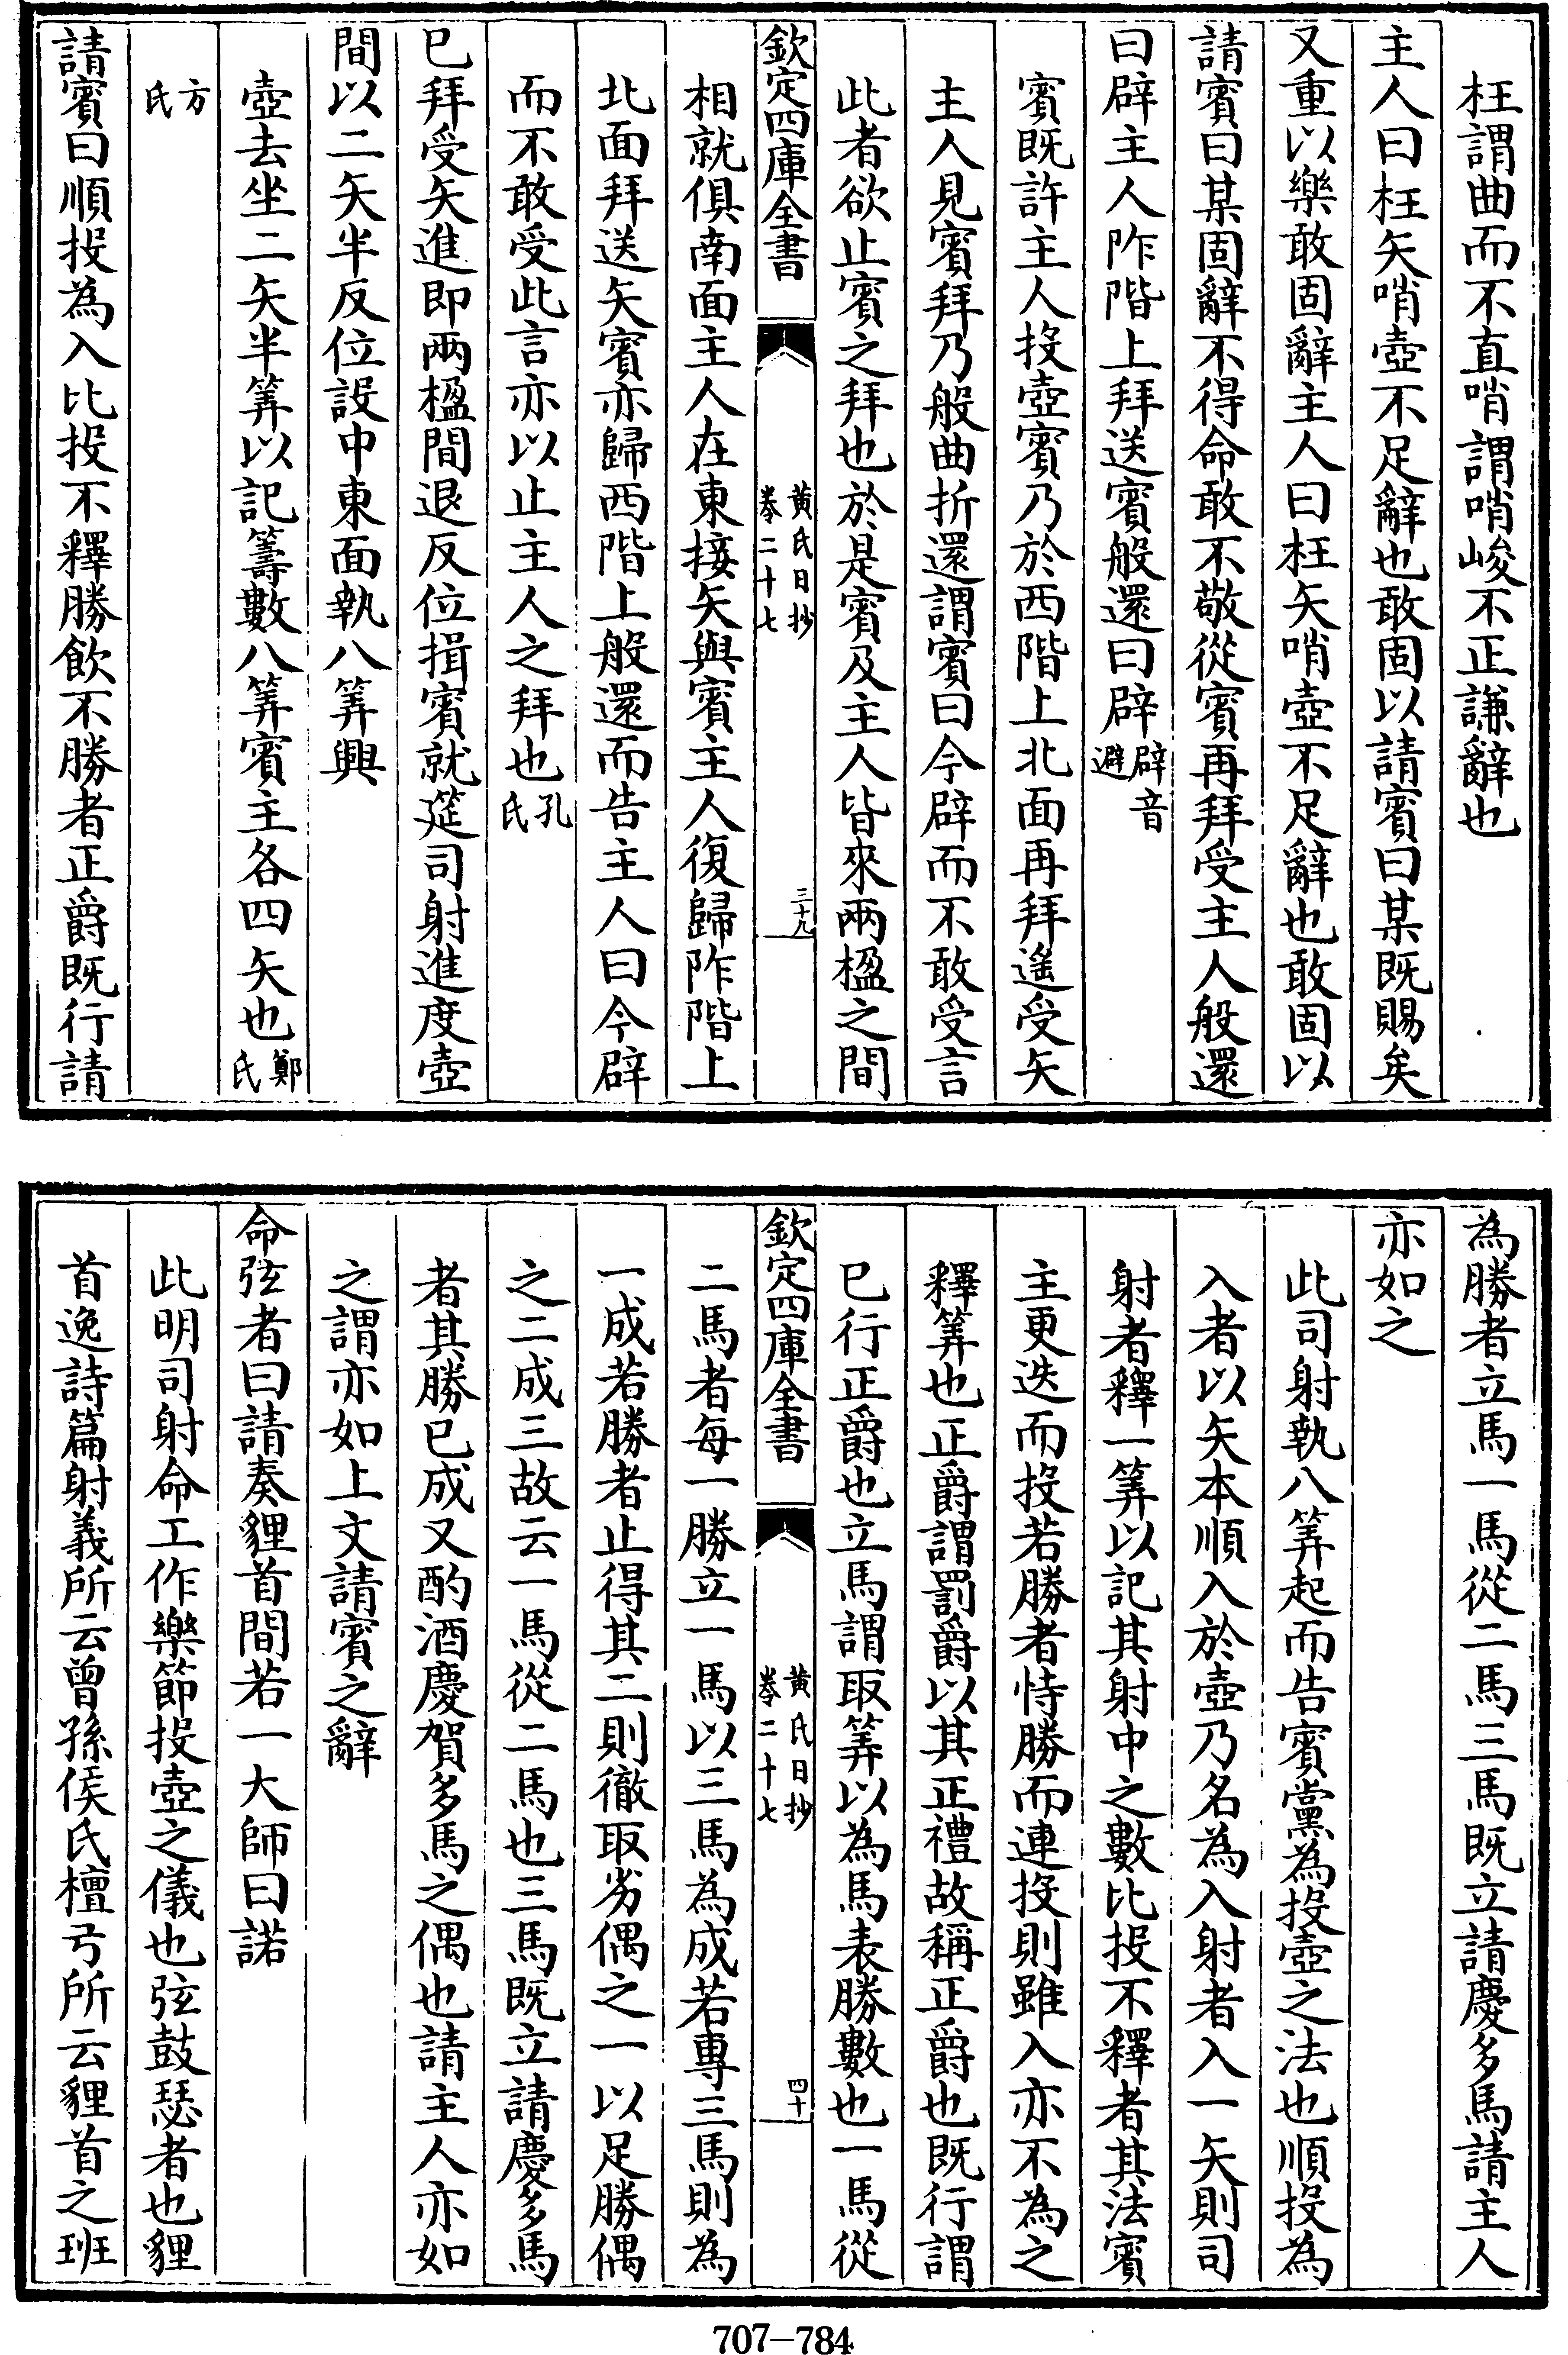 枉謂曲而不直哨謂哨峻不正謙辭也
主人曰枉矢哨壺不足辭也敢固以請賓曰某既賜矣
又重以樂敢固辭主人曰枉矢哨壺不足辭也敢固以
請賓曰某固辭不得命敢不敬從賓再拜受主人般還
曰辟主人阼階上拜送賓般還曰辟辟音避
賓既許主人投壺賓乃於西階上北面再拜遙受矢
主人見賓拜乃般曲折還謂賓曰今辟而不敢受言
此者欲止賓之拜也於是賓及主人皆來兩楹之間
欽定四庫全書
黃氏日抄
卷二十七
三十九
相就俱南面主人在東接矢與賓主人復歸阼階上
北面拜送矢賓亦歸西階上般還而告主人曰今辟
而不敢受此言亦以止主人之拜也孔氏
已拜受矢進即兩楹間退反位揖賓就筵司射進度壺
間以二矢半反位設中東面執八筭興
壺去坐二矢半筭以記籌數八筭賓主各四矢也鄭氏
方氏
請賓曰順投為入比投不釋勝飲不勝者正爵既行請
為勝者立馬一馬從二馬三馬既立請慶多馬請主人
亦如之
此司射執八筭起而告賓黨為投壺之法也順投為
入者以矢本順入於壺乃名為入射者入一矢則司
射者釋一筭以記其射中之數比投不釋者其法賓
主更迭而投若勝者恃勝而連投則雖入亦不為之
釋筭也正爵謂罰爵以其正禮故稱正爵也既行謂
已行正爵也立馬謂取筭以為馬表勝數也一馬從
欽定四庫全書
黃氏日抄
卷二十七
四十
二馬者每一勝立一馬以三馬為成若專三馬則為
一成若勝者止得其二則徹取劣偶之一以足勝偶
之二成三故云一馬從二馬也三馬既立請慶多馬
者其勝已成又酌酒慶賀多馬之偶也請主人亦如
之謂亦如上文請賓之辭
命弦者曰請奏貍首間若一大師曰諾
此明司射命工作樂節投壺之儀也弦鼓瑟者也貍
首逸詩篇射義所云曾孫侯氏檀弓所云貍首之班
707—784